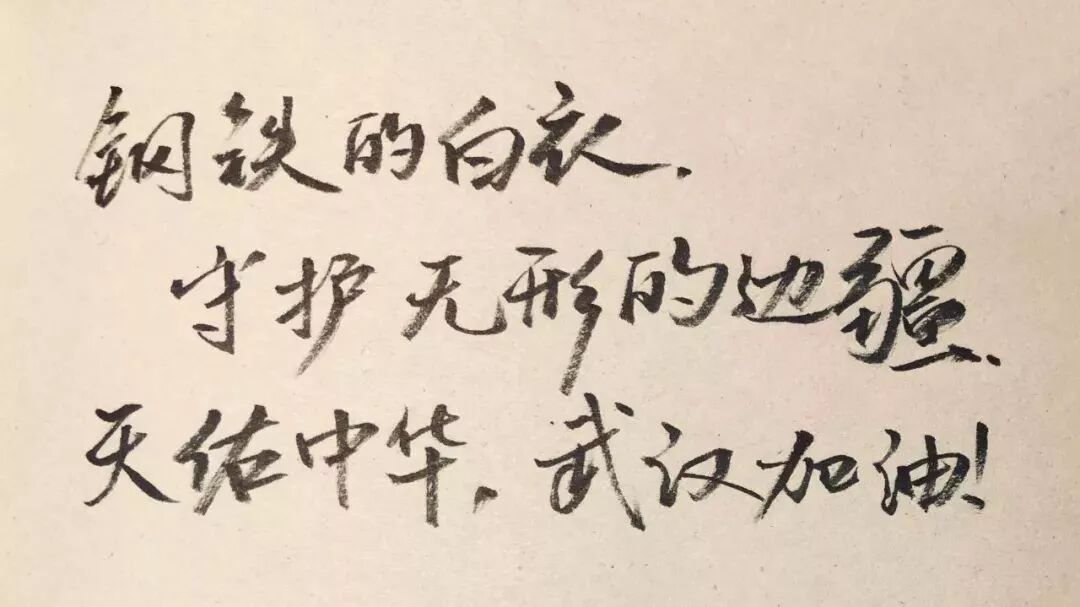 钢铁的白衣.
守护无形的边疆.
天佑中华.武汉加油!